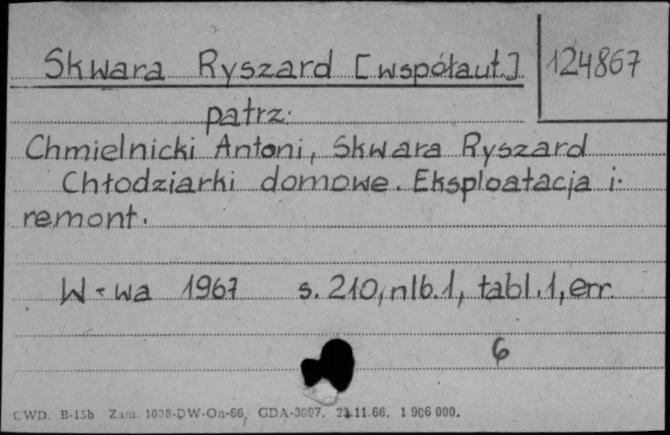 Skwara Ryszard [współaut.] 124867
patrz:
Chmielnicki Antoni, Skwara Ryszard
Chłodziarki domowe. Eksploatacja i
remont.
W-wa 1967 s. 210, nlb. 1, tabl. 1, err.
6
CWD. B-15b Zam. 1038-DW-Oa-66, GDA-3097. 22.11.66. 1 906 000.